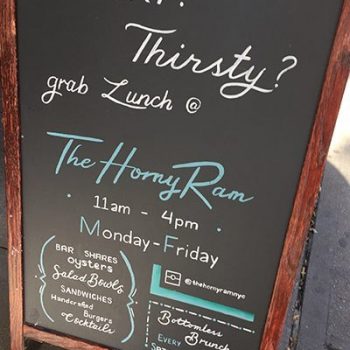 Thirsty?
grab Lunch @
The Horny Ram
11am - 4pm
Monday-Friday
BAR SHARES
Oysters
Salad Bowls
SANDWICHES
Handcrafted
Burgers
Cocktails
@thehornyramnyc
Bottomless
Brunch
EVERY